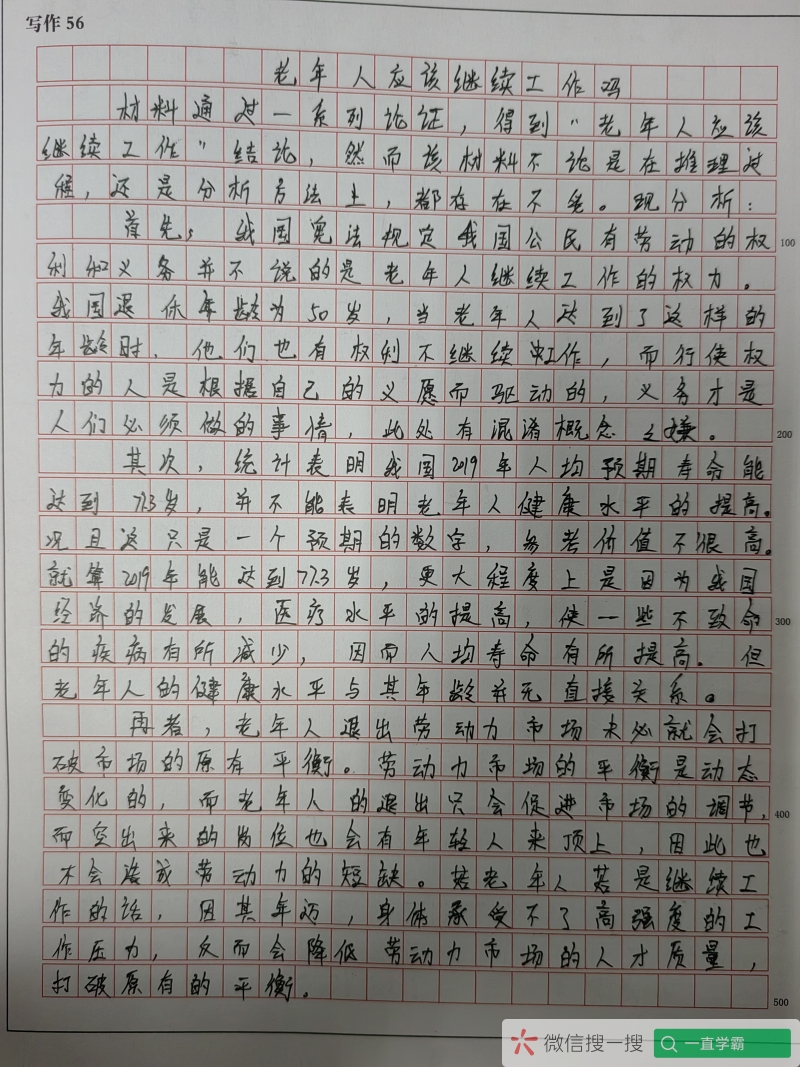 写作 56
老年人应该继续工作吗
材料通过一系列论证，得到"老年人应该
继续工作"结论，然而该材料不论是在推理过
程，还是分析方法上，都存在不免。现分析：
首先，我国宪法规定我国公民有劳动的权
100
利和义务并不说的是老年人继续工作的权力。
我国退休年龄为50岁，当老年人达到了这样的
年龄时，他们也有权利不继续工作，而行使权
力的人是根据自己的义愿而驱动的，义务才是
人们必须做的事情，此处有混淆概念之嫌。
200
其次，统计表明我国2019年人均预期寿命能
达到77.3岁，并不能表明老年人健康水平的提高。
况且这只是一个预期的数字，参考价值不很高。
就算2019年能达到77.3岁，更大程度上是因为我国
经济的发展，医疗水平的提高，使一些不致命
300
的疾病有所减少，因而人均寿命有所提高。但
老年人的健康水平与其年龄并无直接关系。
再者，老年人退出劳动力市场未必就会打
破市场的原有平衡。劳动力市场的平衡是动态
变化的，而老年人的退出只会促进市场的调节，
400
而空出来的岗位也会有年轻人来顶上，因此也
不会造成劳动力的短缺。若老年人若是继续工
作的话，因其年迈，身体承受不了高强度的工
作压力，反而会降低劳动力市场的人才质量，
打破原有的平衡。
500
微信搜一搜
一直学霸